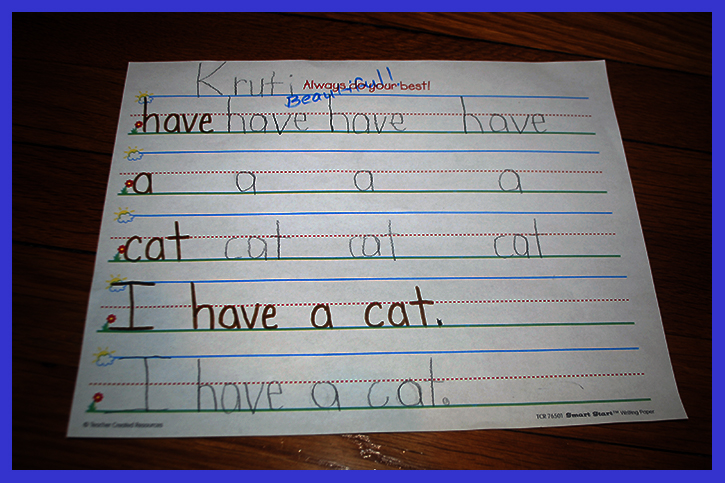 Kruti
Always do your best!
Beautiful!
have have have have
a a a a
cat cat cat cat
I have a cat.
I have a cat.
© Teacher Created Resources TCR 76501 Smart Start™ Writing Paper